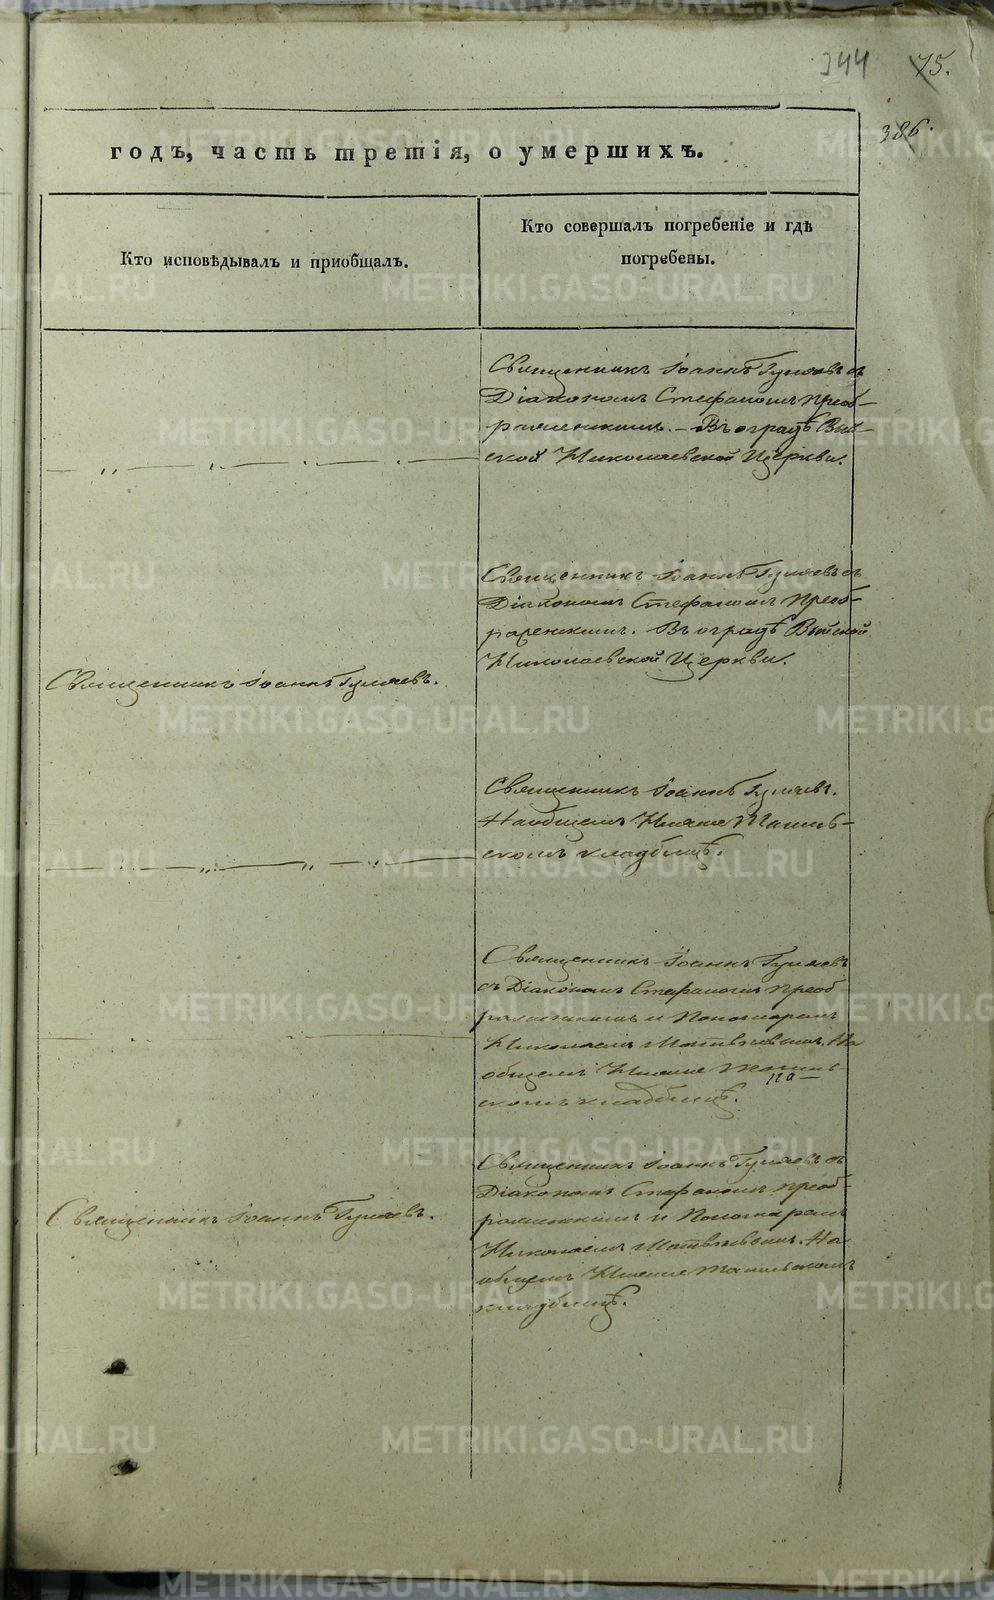 344 75.
386.
годъ, часть третія, о умершихъ.
Кто исповѣдывалъ и пріобщалъ.
Кто совершалъ погребеніе и гдѣ
погребены.
Священникъ Іоаннъ Гуляевъ съ
Діакономъ Стефаномъ Преоб-
раженскимъ. – Въ оградѣ Вый-
ской Николаевской Церкви.
Священникъ Іоаннъ Гуляевъ съ
Діакономъ Стефаномъ Преоб-
раженскимъ. Въ оградѣ Выйской
Николаевской Церкви.
Священникъ Іоаннъ Гуляевъ.
Священникъ Іоаннъ Гуляевъ.
На общемъ Нижне Тагиль-
скомъ кладбищѣ.
Священникъ Іоаннъ Гуляевъ
съ Діакономъ Стефаномъ Преоб-
раженскимъ и Пономаремъ
Николаемъ Матвѣевымъ. На
общемъ Нижне Тагиль-
скомъ кладбищѣ.
Священникъ Іоаннъ Гуляевъ.
Священникъ Іоаннъ Гуляевъ съ
Діакономъ Стефаномъ Преоб-
раженскимъ и Пономаремъ
Николаемъ Матвѣевымъ. На
общемъ Нижне Тагильскомъ
кладбищѣ.
METRIKI.GASO-URAL.RU